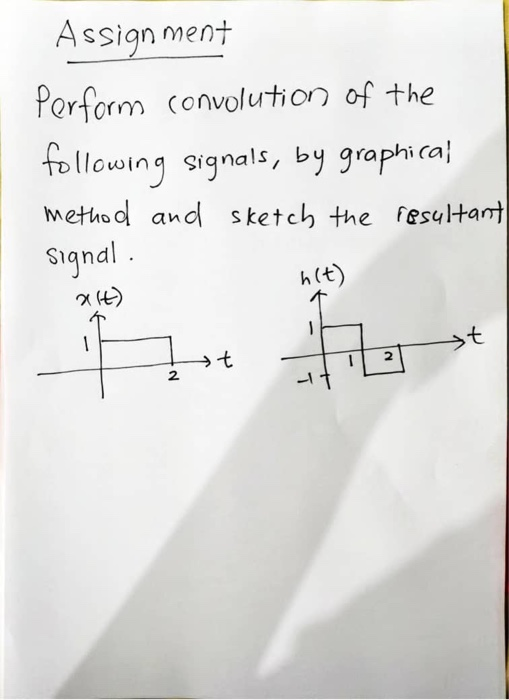 Assignment
Perform convolution of the
following signals, by graphical
method and sketch the resultant
signal.
x(t)
1
2
t
h(t)
1
1
2
t
-1